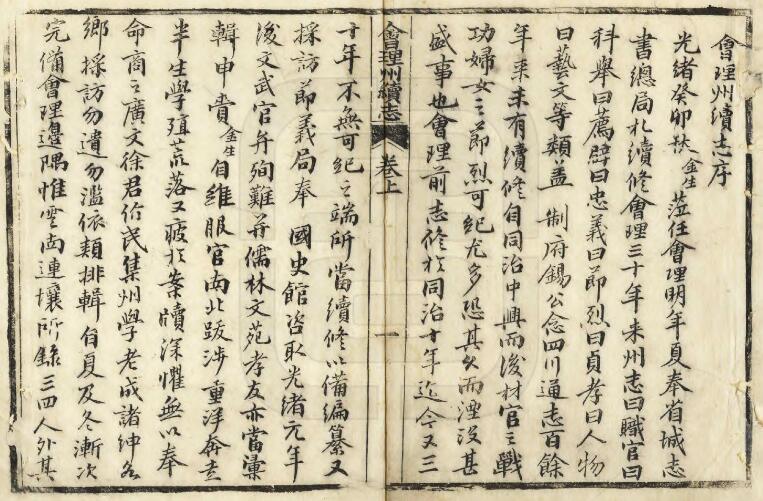 會理州續志序
光緒癸卯秋金生蒞任會理明年夏奉省城志
書總局札續修會理三十年來州志曰職官曰
科舉曰薦辟曰忠義曰節烈曰貞孝曰人物
曰藝文等類蓋 制府錫公念四川通志百餘
年來未有續修自同治中興而後材官之戰
功婦女之節烈可紀尤多恐其久而湮沒甚
盛事也會理前志修於同治十年迄今又三
會理州續志 卷上 一
十年不無可紀之端所當續修以備編纂又
採訪節義局奉 國史館咨取光緒元年
後文武官弁殉難并儒林文苑孝友亦當彙
輯申賫金生自維服官南北跋涉重洋奔走
半生學殖荒落又疲於案牘深懼無以奉
命商之廣文徐君价民集州學老成諸紳各
鄉採訪勿遺勿濫依類排輯自夏及冬漸次
完備會理邊隅惟雲南連壤所錄三四人外其